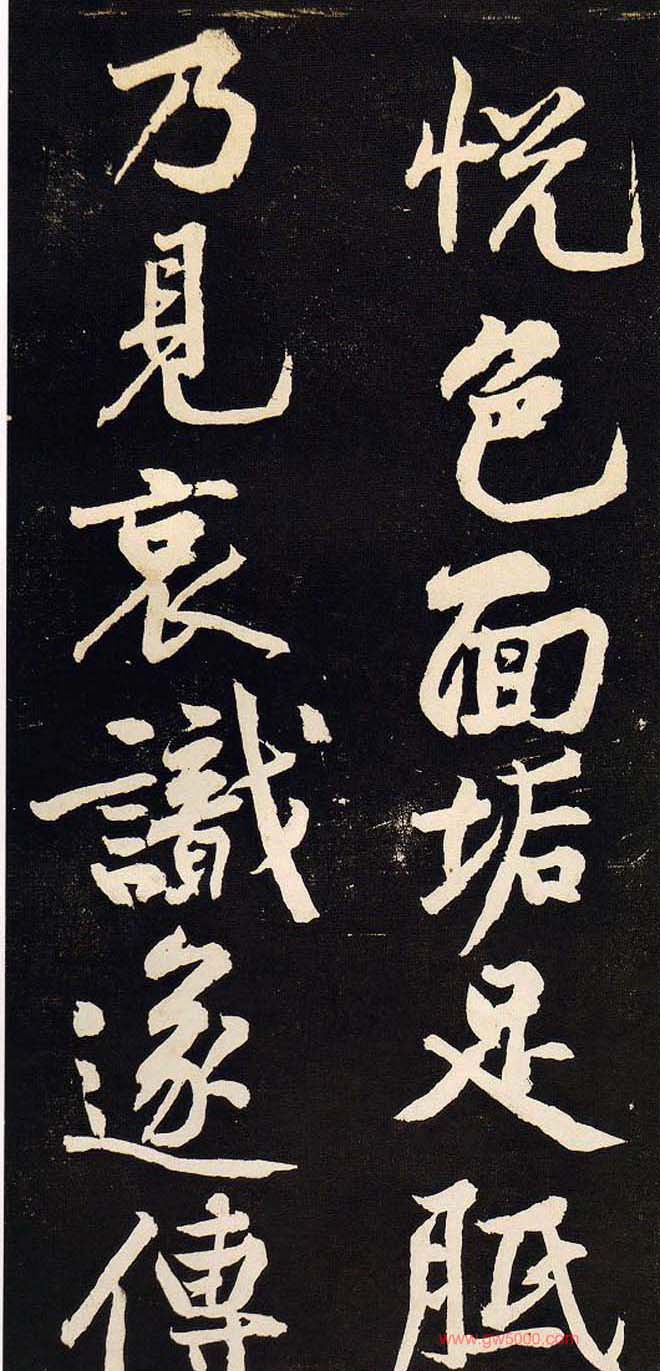 悦色面垢足胝
乃見哀識遂傳
www.gw5000.com